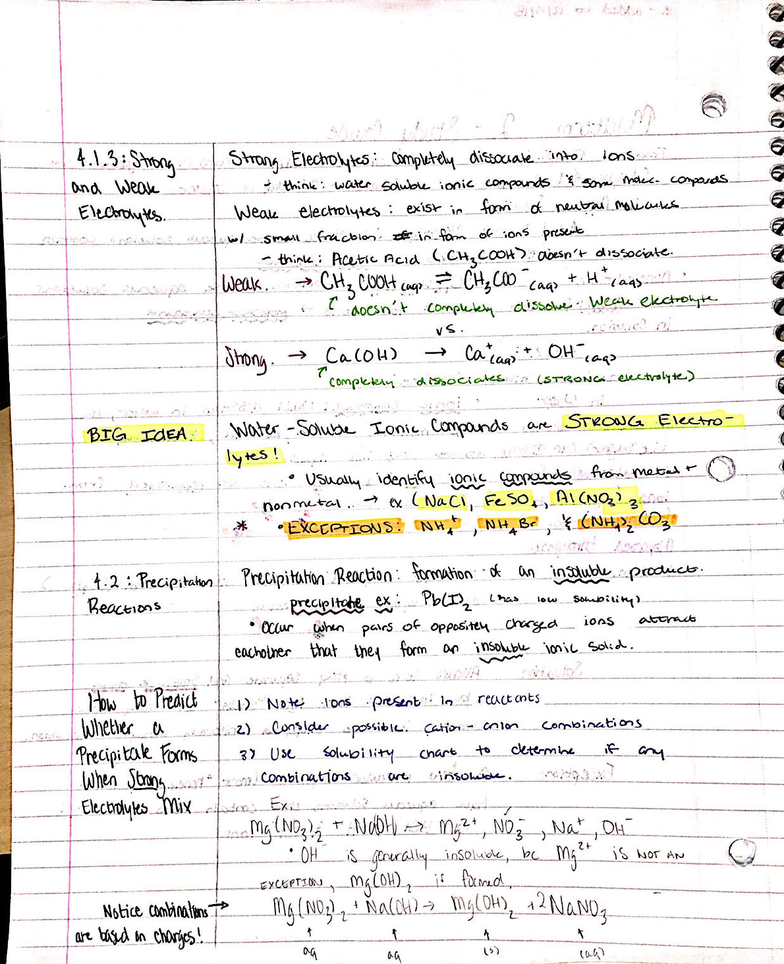 4.1.3: Strong
and Weak
Electrolytes.
Strong Electrolytes: completely dissociate into ions
→ think: water soluble ionic compounds & some molec. compounds
Weak electrolytes: exist in form of neutral molecules
w/ small fraction in form of ions present
- think: Acetic Acid (CH₃COOH) doesn't dissociate.
Weak. → CH₃COOH(aq) ⇌ CH₃COO⁻(aq) + H⁺(aq)
↑ doesn't completely dissolve. Weak electrolyte
vs.
Strong. → Ca(OH) → Ca⁺(aq) + OH⁻(aq)
↑ completely dissociates (STRONG electrolyte)
BIG IDEA.
Water-Soluble Ionic Compounds are STRONG Electro-
lytes!
• Usually identify ionic compounds from metal +
nonmetal. → ex (NaCl, FeSO₄, Al(NO₃)₃
* • EXCEPTIONS: NH₄⁺, NH₄Br, & (NH₄)₂CO₃
4.2: Precipitation
Reactions
Precipitation Reaction: formation of an insoluble product.
precipitate ex: Pb(I)₂ (has low solubility)
• Occur when pairs of oppositely charged ions attract
eachother that they form an insoluble ionic solid.
How to Predict
Whether a
Precipitate Forms
When Strong
Electrolytes Mix
1) Note: Ions present in reactants
2) Consider possible cation-anion combinations
3) Use solubility chart to determine if any
combinations are insoluble.
Ex.
Mg(NO₃)₂ + NaOH → Mg²⁺, NO₃⁻, Na⁺, OH⁻
• OH is generally insoluble, bc Mg²⁺ IS NOT AN
EXCEPTION, Mg(OH)₂ is formed.
Notice combinations →
are based on charges!
Mg(NO₃)₂ + Na(OH) → Mg(OH)₂ + 2NaNO₃
↑ ↑ ↑ ↑
aq aq (s) (aq)